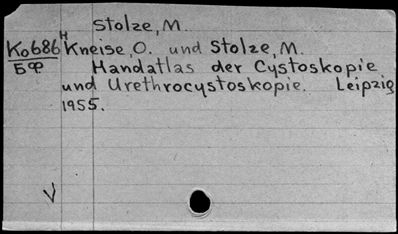 Stolze, M.
Ko686 H Kneise, O. und Stolze, M.
БФ Handatlas der Cystoskopie
und Urethrocystoskopie. Leipzig
1955.
V